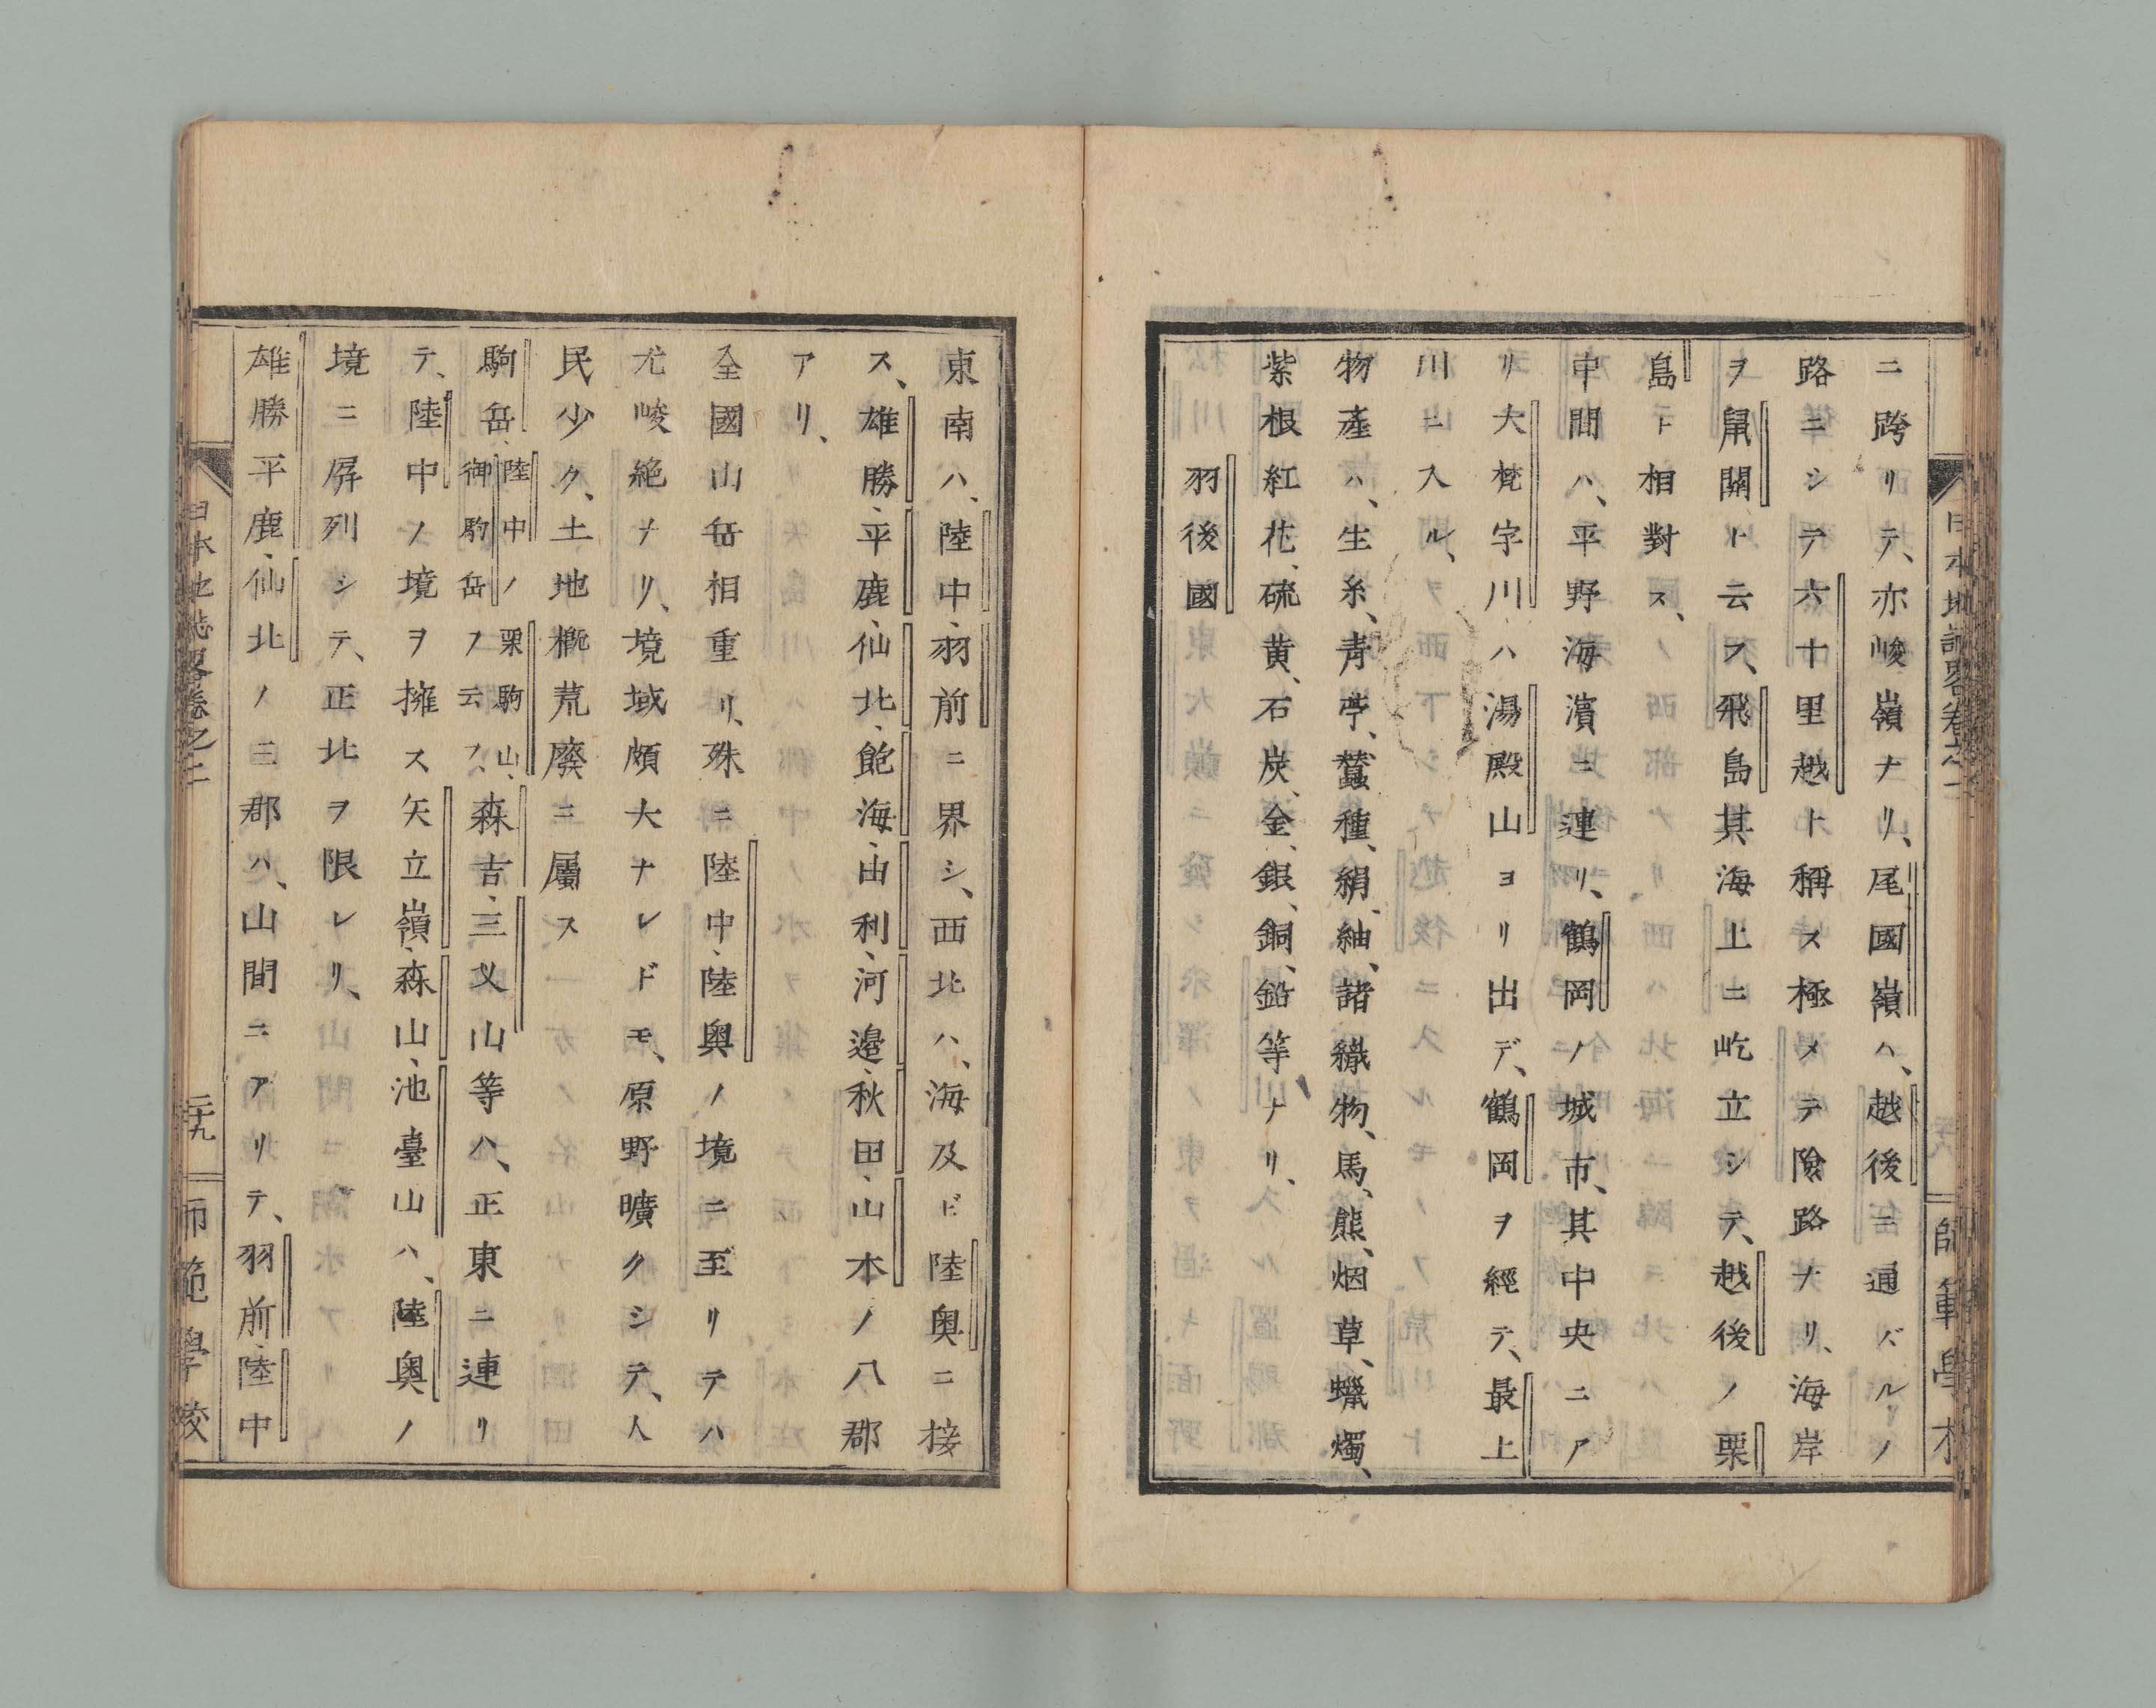 ニ跨リテ、亦峻嶺ナリ、尾國嶺ハ、越後ニ通ズルノ
路ニシテ六十里越ト稱ス極メテ險路ナリ、海岸
ヲ鼠關ト云フ、飛島其海上ニ屹立シテ、越後ノ粟
島ト相對ス、
中間ハ、平野海濱ニ連リ、鶴岡ノ城市、其中央ニア
リ大梵字川ハ湯殿山ヨリ出デ、鶴岡ヲ經テ、最上
川ニ入ル、
物產ハ、生糸、青苧、蠶種、絹、紬、諸織物、馬、熊、烟草、蠟燭、
紫根紅花、硫黄、石炭、金、銀、銅、鉛等ナリ、
羽後國
東南ハ、陸中、羽前ニ界シ、西北ハ、海及ビ陸奥ニ接
ス、雄勝、平鹿、仙北、飽海、由利、河邉、秋田、山本ノ八郡
アリ、
全國山岳相重リ、殊ニ陸中、陸奥ノ境ニ至リテハ
尤峻絶ナリ、境域頗大ナレドモ、原野曠クシテ、人
民少ク、土地概荒廢ニ屬ス
駒岳、陸中ノ御駒岳ノ云フ、栗駒山、森吉、三又山等ハ、正東ニ連リ
テ、陸中ノ境ヲ擁ス矢立嶺、森山、池臺山ハ、陸奥ノ
境ニ屏列シテ、正北ヲ限レリ、
雄勝平鹿、仙北ノ三郡ハ、山間ニアリテ、羽前、陸中
日本地誌畧卷之二
二十九
師範學校